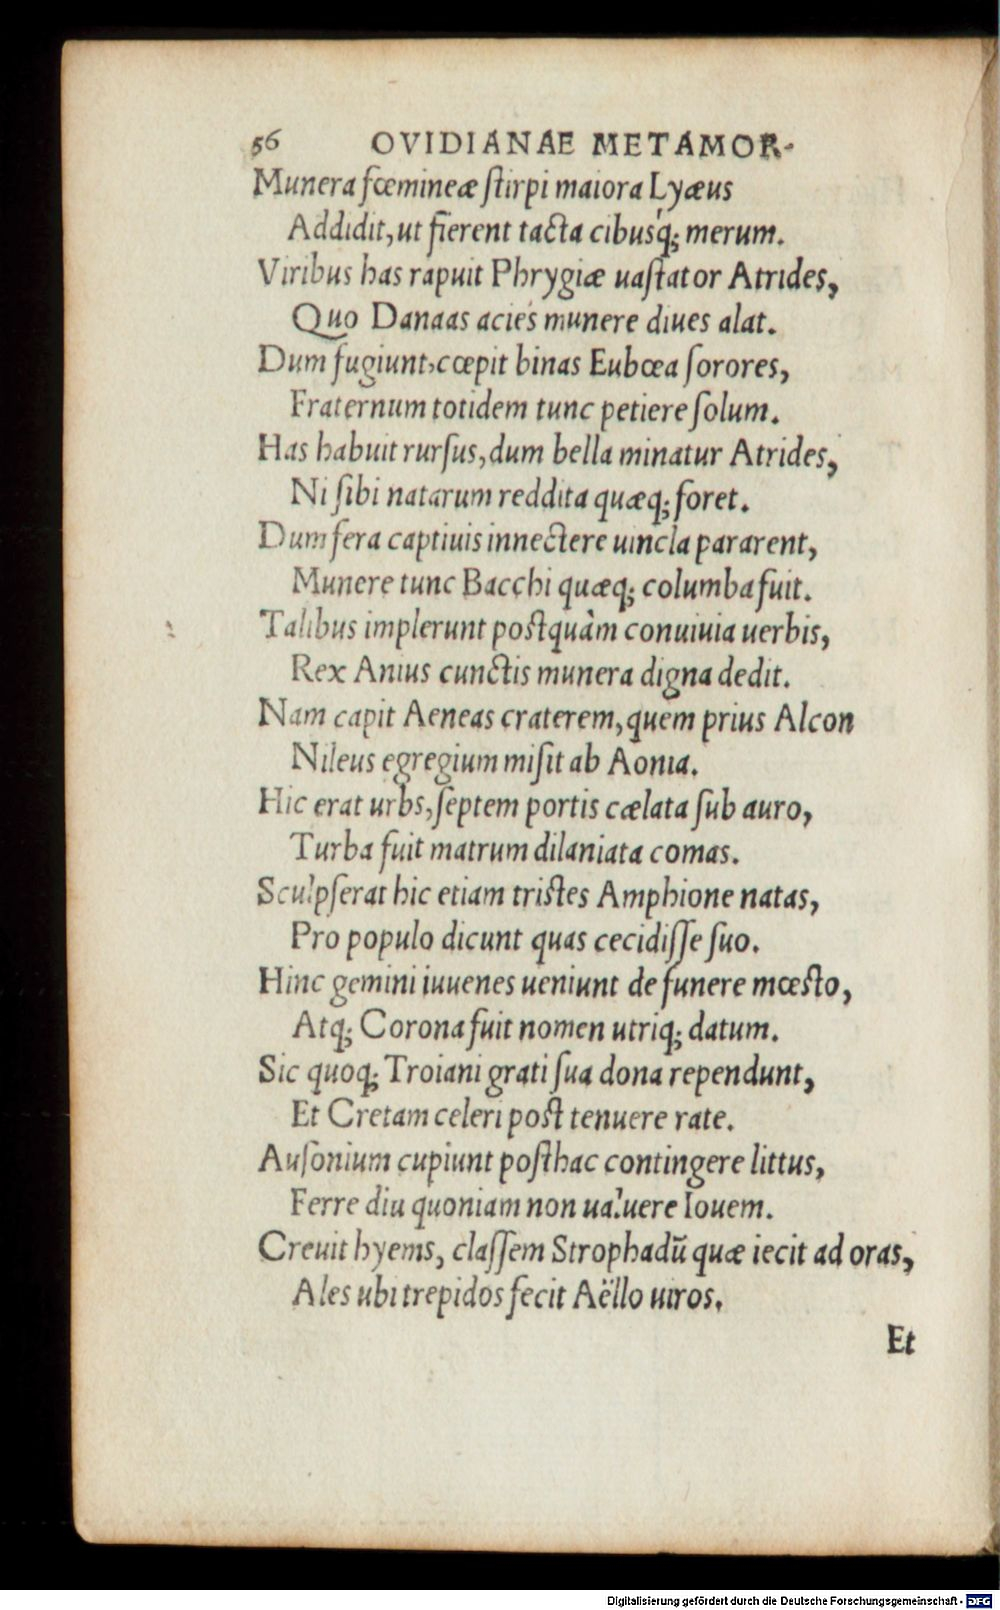 56 OVIDIANAE METAMOR-
Munera fœmineæ ſtirpi maiora Lyæus
Addidit, ut fierent tacta cibusq́; merum.
Viribus has rapuit Phrygiæ uaſtator Atrides,
Quo Danaas acies munere diues alat.
Dum fugiunt, cœpit binas Eubœa ſorores,
Fraternum totidem tunc petiere ſolum.
Has habuit rurſus, dum bella minatur Atrides,
Ni ſibi natarum reddita quæq; foret.
Dum fera captiuis innectere uincla pararent,
Munere tunc Bacchi quæq; columba fuit.
Talibus implerunt poſtquàm conuiuia uerbis,
Rex Anius cunctis munera digna dedit.
Nam capit Aeneas craterem, quem prius Alcon
Nileus egregium miſit ab Aonia.
Hic erat urbs, ſeptem portis cælata ſub auro,
Turba fuit matrum dilaniata comas.
Sculpſerat hic etiam triſtes Amphione natas,
Pro populo dicunt quas cecidiſſe ſuo.
Hinc gemini iuuenes ueniunt de funere mœſto,
Atq; Corona fuit nomen utriq; datum.
Sic quoq; Troiani grati ſua dona rependunt,
Et Cretam celeri poſt tenuere rate.
Auſonium cupiunt poſthac contingere littus,
Ferre diu quoniam non ualuere Iouem.
Creuit hyems, claſſem Strophadū quæ iecit ad oras,
Ales ubi trepidos fecit Aëllo uiros.
Et
Digitalisierung gefördert durch die Deutsche Forschungsgemeinschaft - DFG